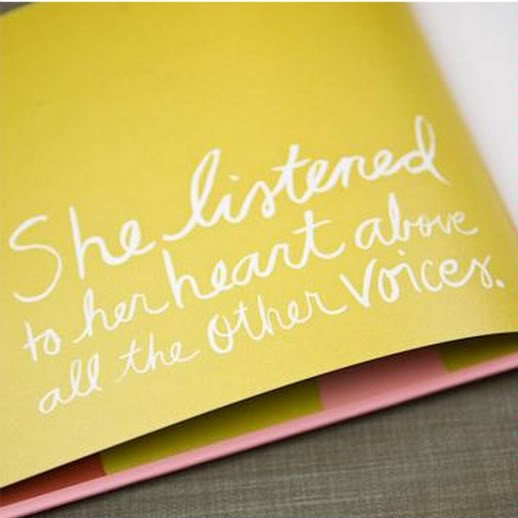 She listened
to her heart above
all the other voices.